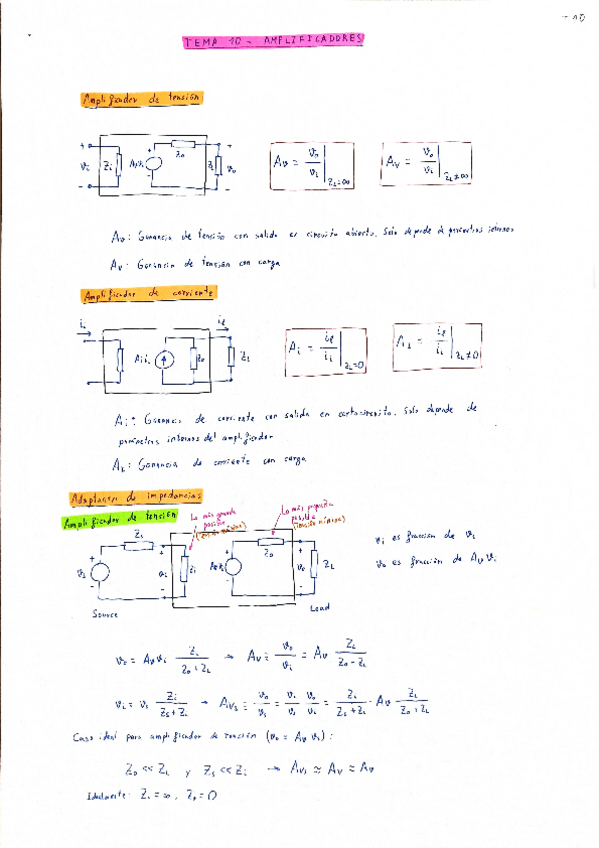 - 10
TEMA 10 - AMPLIFICADORES
Amplificador de tensión
+ + vi Zi Av vi Zo ZL vo - -
Av = vo / vi | ZL=∞
AV = vo / vi | ZL≠∞
Av: Ganancia de tensión con salida en circuito abierto. Solo depende de parámetros internos
AV: Ganancia de tensión con carga
Amplificador de corriente
ii iL
Ai ii Zo ZL
Ai = iL / ii | ZL=0
AiL = iL / ii | ZL≠0
Ai: Ganancia de corriente con salida en cortocircuito. Solo depende de
parámetros internos del amplificador
AL: Ganancia de corriente con carga
Adaptación de impedancias
Amplificador de tensión
Lo más grande posible (tensión máxima)
Lo más pequeña posible (tensión mínima)
Zs Zo
vs vi Zi Av vi vo ZL
vi es fracción de vs
vo es fracción de Av vi
Source Load
vo = Av vi ZL / Zo + ZL → AV = vo / vi = Av ZL / Zo - ZL
vi = vs Zi / Zs + Zi → AVs = vo / vs = vi / vs vo / vi = Zi / Zs + Zi · Av ZL / Zo + ZL
Caso ideal para amplificador de tensión (vo = Av vs):
Zo << ZL y Zs << Zi → AVs ≃ AV ≃ Av
Idealmente: Zi = ∞, Zo = 0